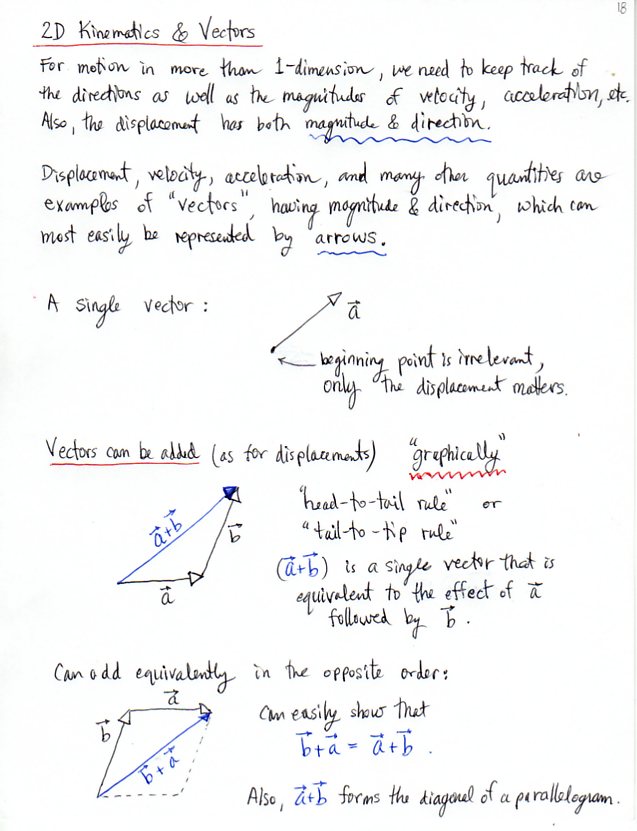 18
2D Kinematics & Vectors
For motion in more than 1-dimension, we need to keep track of
the directions as well as the magnitudes of velocity, acceleration, etc.
Also, the displacement has both magnitude & direction.
Displacement, velocity, acceleration, and many other quantities are
examples of "vectors", having magnitude & direction, which can
most easily be represented by arrows.
A single vector:
a⃗
beginning point is irrelevant,
only the displacement matters.
Vectors can be added (as for displacements) "graphically"
a⃗+b⃗
b⃗
a⃗
"head-to-tail rule" or
"tail-to-tip rule"
(a⃗+b⃗) is a single vector that is
equivalent to the effect of a⃗
followed by b⃗.
Can add equivalently in the opposite order:
a⃗
b⃗
b⃗+a⃗
Can easily show that
b⃗+a⃗ = a⃗+b⃗.
Also, a⃗+b⃗ forms the diagonal of a parallelogram.